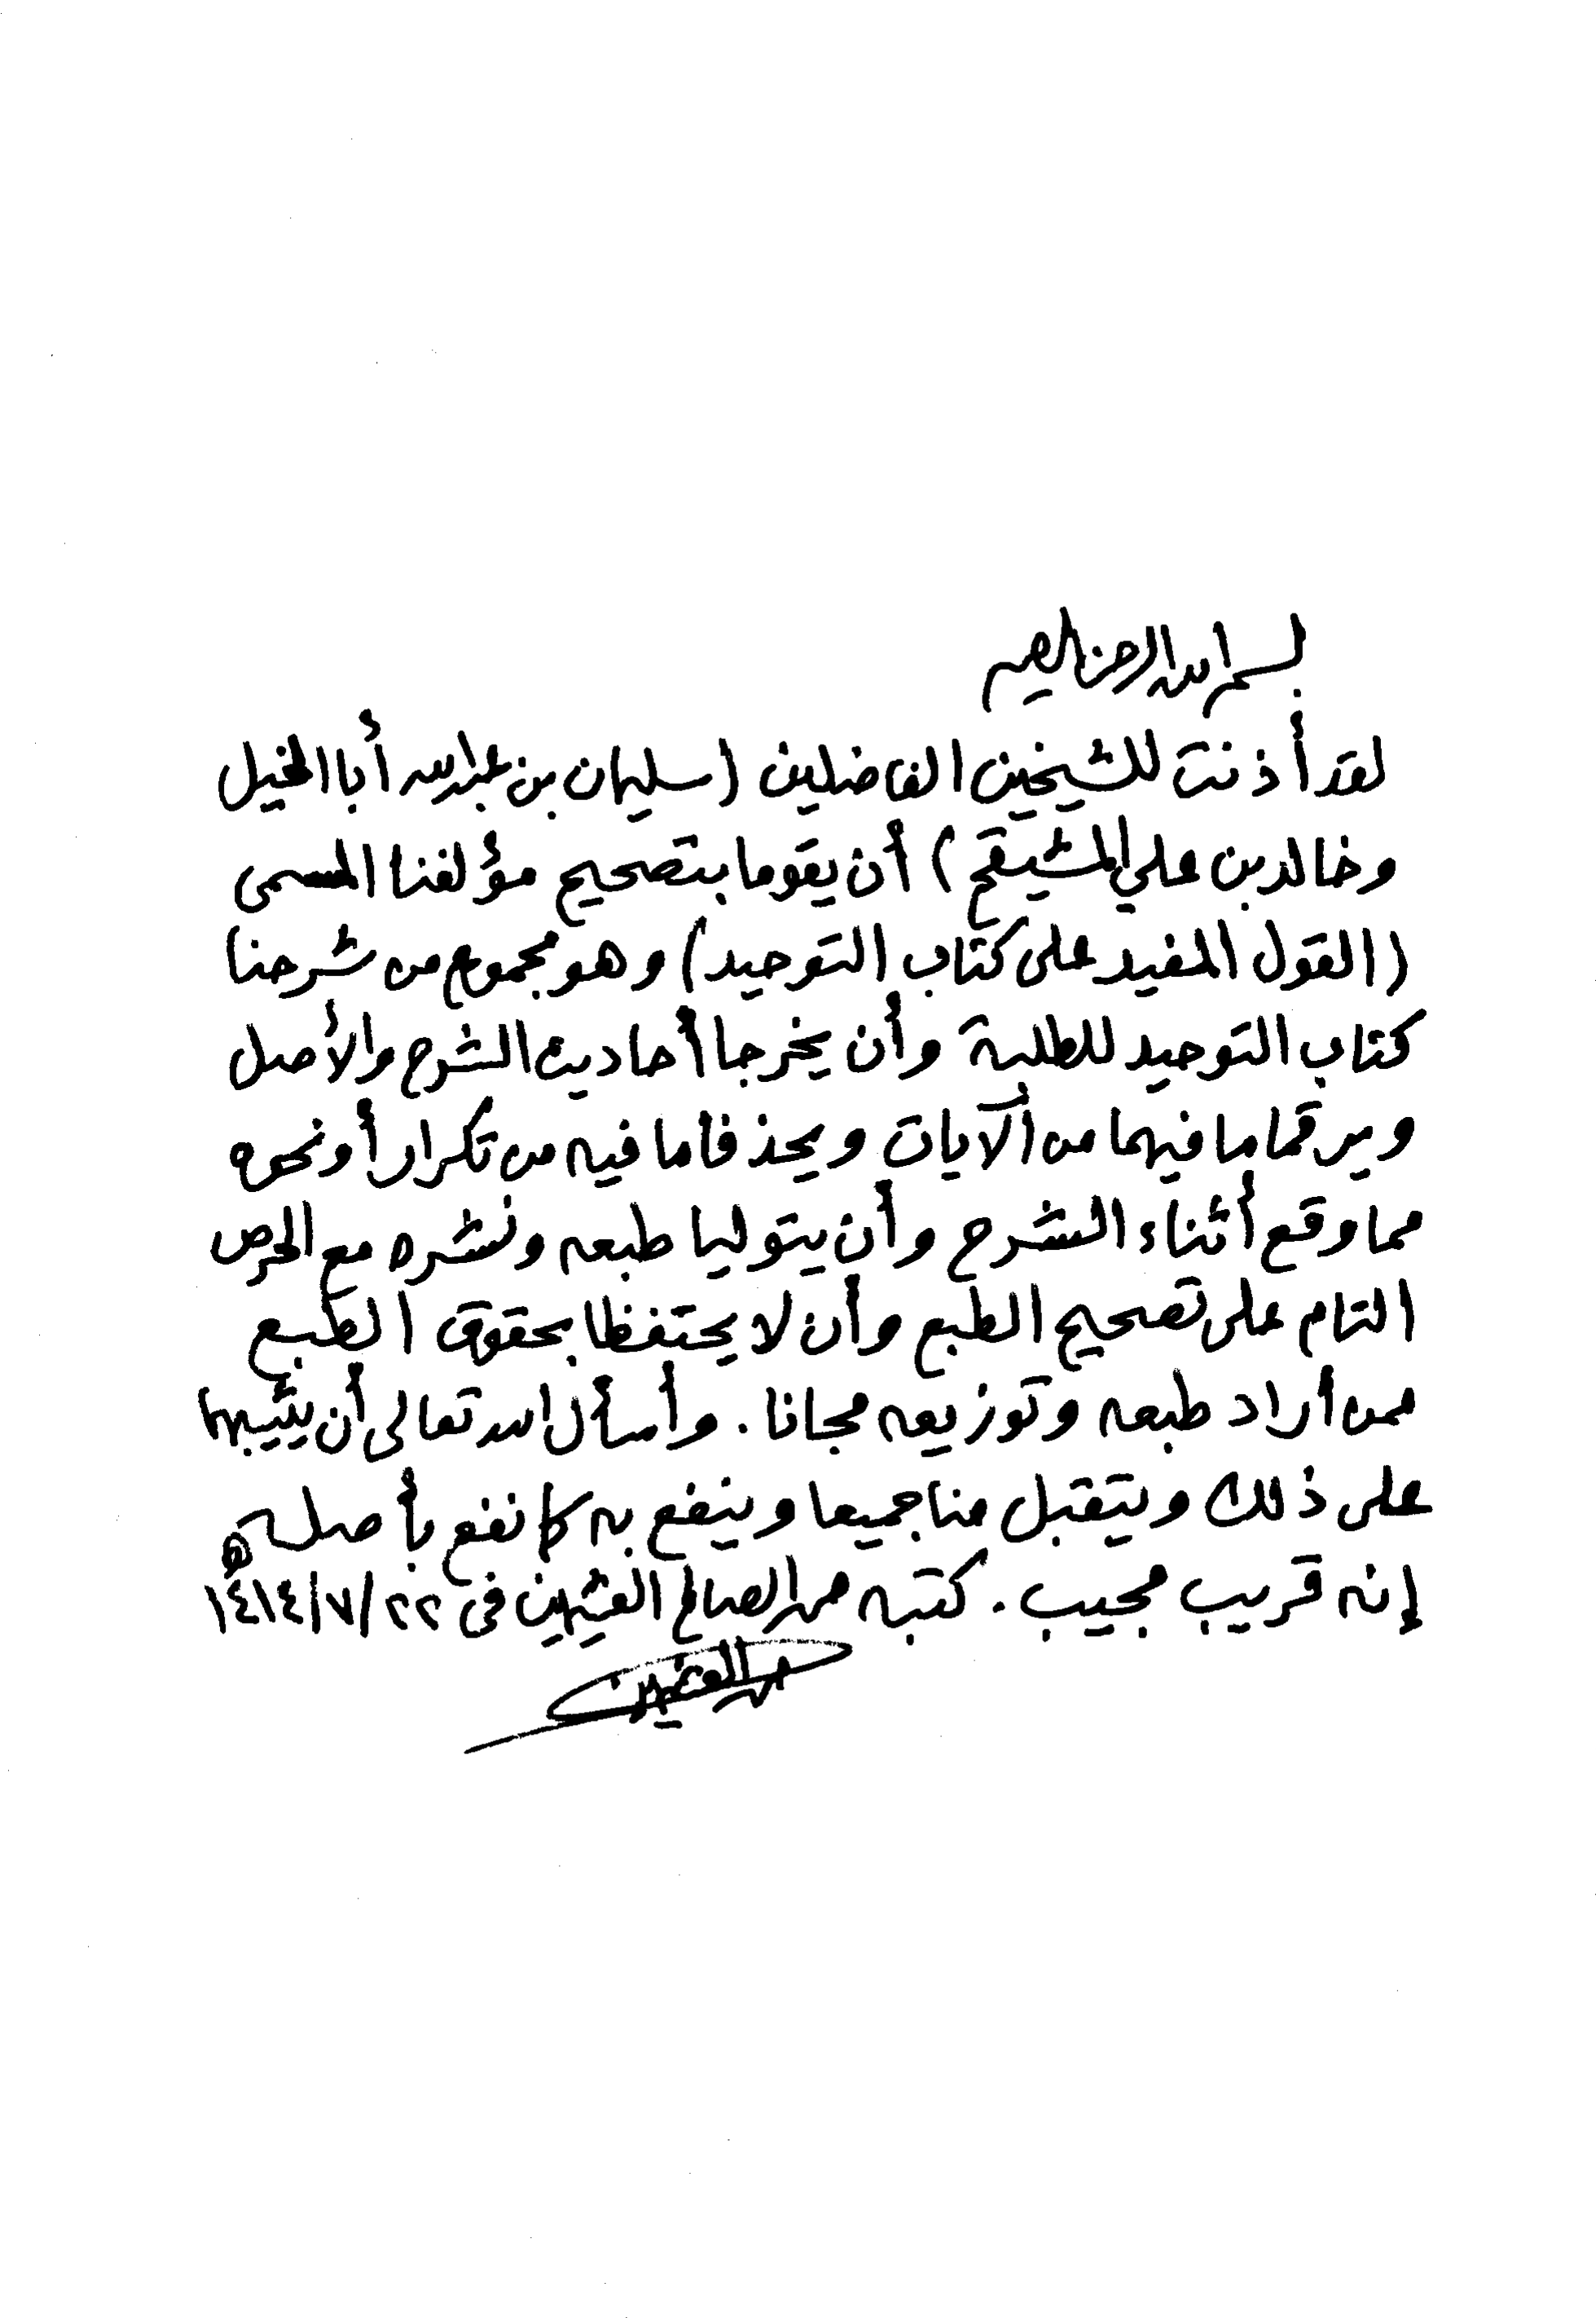 بسم الله الرحمن الرحيم
لقد أذنت للشيخين الفاضلين (سليمان بن عبدالله أبا الخيل
وخالد بن علي المشيقح) أن يقوما بتصحيح مؤلفنا المسمى
(القول المفيد على كتاب التوحيد) وهو مجموع من شرحنا
كتاب التوحيد للطلبة وأن يخرجا أحاديث الشرح والأصل
ويرقما ما فيهما من الآيات ويحذفا ما فيه من تكرار أو نحوه
مما وقع أثناء الشرح وأن يتوليا طبعه ونشره مع الحرص
التام على تصحيح الطبع وأن لا يحتفظا بحقوق الطبع
ممن أراد طبعه وتوزيعه مجانا. وأسأل الله تعالى أن يثيبهما
على ذلك ويتقبل منا جميعا وينفع به كما نفع بأصله
إنه قريب مجيب. كتبه محمد الصالح العثيمين فى ٢٢/٧/١٤١٤ﻫ
محمد العثيمين